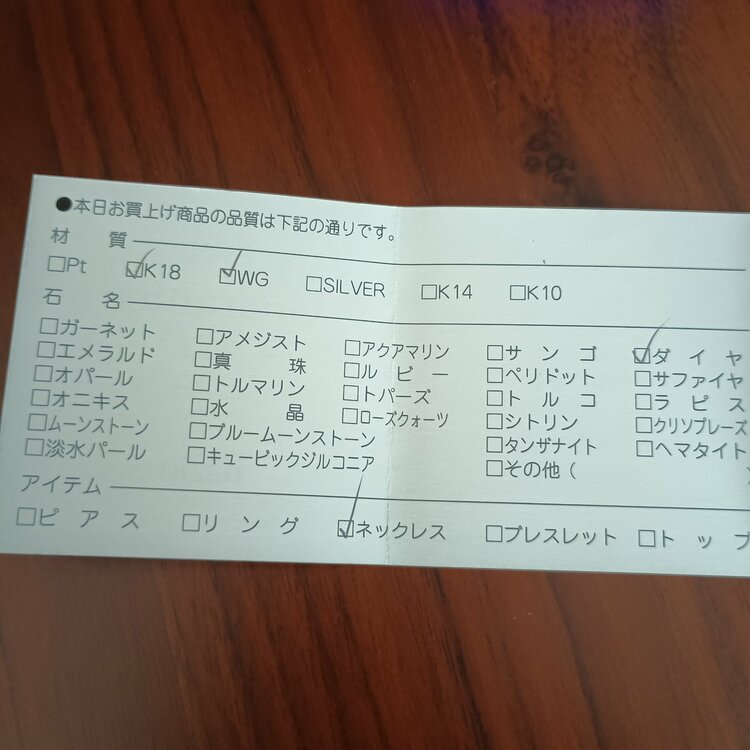 ●本日お買上げ商品の品質は下記の通りです。
材 質
□Pt ☑K18 ☑WG □SILVER □K14 □K10
石 名
□ガーネット □アメジスト □アクアマリン □サンゴ ☑ダイヤ
□エメラルド □真珠 □ルビー □ペリドット □サファイヤ
□オパール □トルマリン □トパーズ □トルコ □ラピス
□オニキス □水晶 □ローズクォーツ □シトリン □クリソプレーズ
□ムーンストーン □ブルームーンストーン □タンザナイト □ヘマタイト
□淡水パール □キュービックジルコニア □その他(
アイテム
□ピアス □リング ☑ネックレス □ブレスレット □トップ